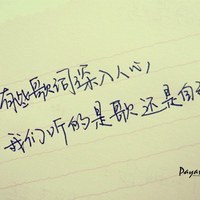 有些歌词深入人心,
我们听的是歌 还是自
Paya